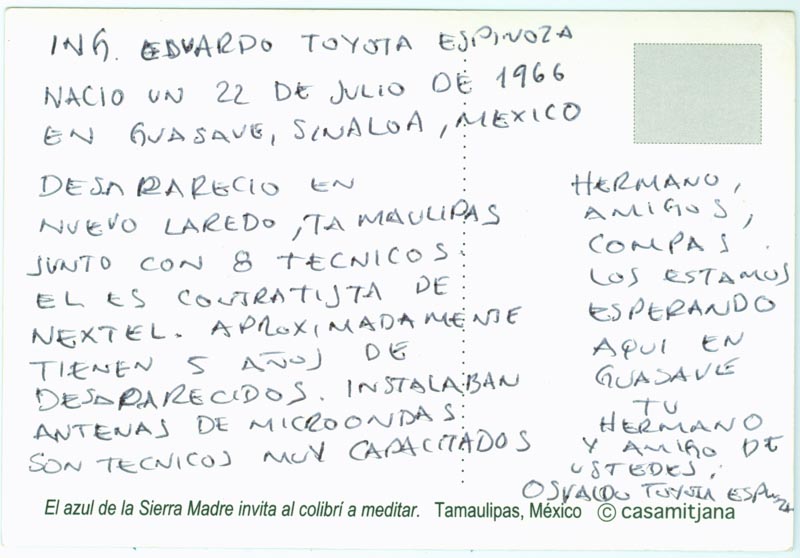 ING. EDUARDO TOYOTA ESPINOZA
NACIO UN 22 DE JULIO DE 1966
EN GUASAVE, SINALOA, MEXICO
DESAPARECIO EN
NUEVO LAREDO, TAMAULIPAS
JUNTO CON 8 TECNICOS.
EL ES CONTRATISTA DE
NEXTEL. APROXIMADAMENTE
TIENEN 5 AÑOS DE
DESAPARECIDOS. INSTALABAN
ANTENAS DE MICROONDAS.
SON TECNICOS MUY CAPACITADOS
HERMANO,
AMIGOS,
COMPAS.
LOS ESTAMOS
ESPERANDO
AQUI EN
GUASAVE
TU
HERMANO
Y AMIGO DE
USTEDES;
OSVALDO TOYOTA ESPINOZA
El azul de la Sierra Madre invita al colibrí a meditar. Tamaulipas, México © casamitjana